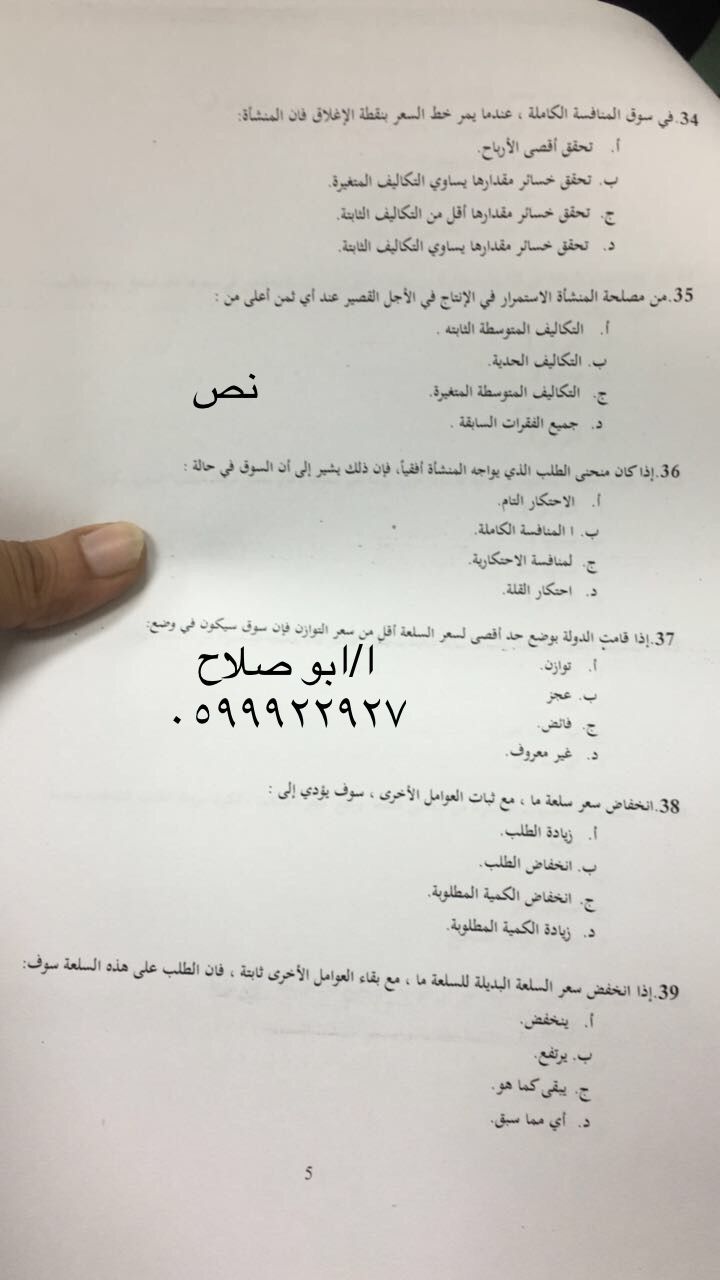 34.في سوق المنافسة الكاملة ، عندما يمر خط السعر بنقطة الإغلاق فان المنشأة:
أ. تحقق أقصى الأرباح.
ب. تحقق خسائر مقدارها يساوي التكاليف المتغيرة.
ج. تحقق خسائر مقدارها أقل من التكاليف الثابتة.
د. تحقق خسائر مقدارها يساوي التكاليف الثابتة.
35.من مصلحة المنشأة الاستمرار في الإنتاج في الأجل القصير عند أي ثمن أعلى من :
أ. التكاليف المتوسطة الثابته .
ب. التكاليف الحدية.
ج. التكاليف المتوسطة المتغيرة.
نص
د. جميع الفقرات السابقة .
36.إذا كان منحنى الطلب الذي يواجه المنشأة أفقياً، فإن ذلك يشير إلى أن السوق في حالة :
أ. الاحتكار التام.
ب. ا المنافسة الكاملة.
ج. لمنافسة الاحتكارية.
د. احتكار القلة.
37.إذا قامت الدولة بوضع حد أقصى لسعر السلعة أقل من سعر التوازن فإن سوق سيكون في وضع:
أ. توازن.
ا/ابو صلاح
ب. عجز
ج. فائض.
٠٥٩٩٩٢٢٩٢٧
د. غير معروف.
38.انخفاض سعر سلعة ما ، مع ثبات العوامل الأخرى ، سوف يؤدي إلى :
أ. زيادة الطلب.
ب. انخفاض الطلب.
ج. انخفاض الكمية المطلوبة.
د. زيادة الكمية المطلوبة.
39.إذا انخفض سعر السلعة البديلة للسلعة ما ، مع بقاء العوامل الأخرى ثابتة ، فان الطلب على هذه السلعة سوف:
أ. ينخفض.
ب. يرتفع.
ج. يبقى كما هو.
د. أي مما سبق.
5